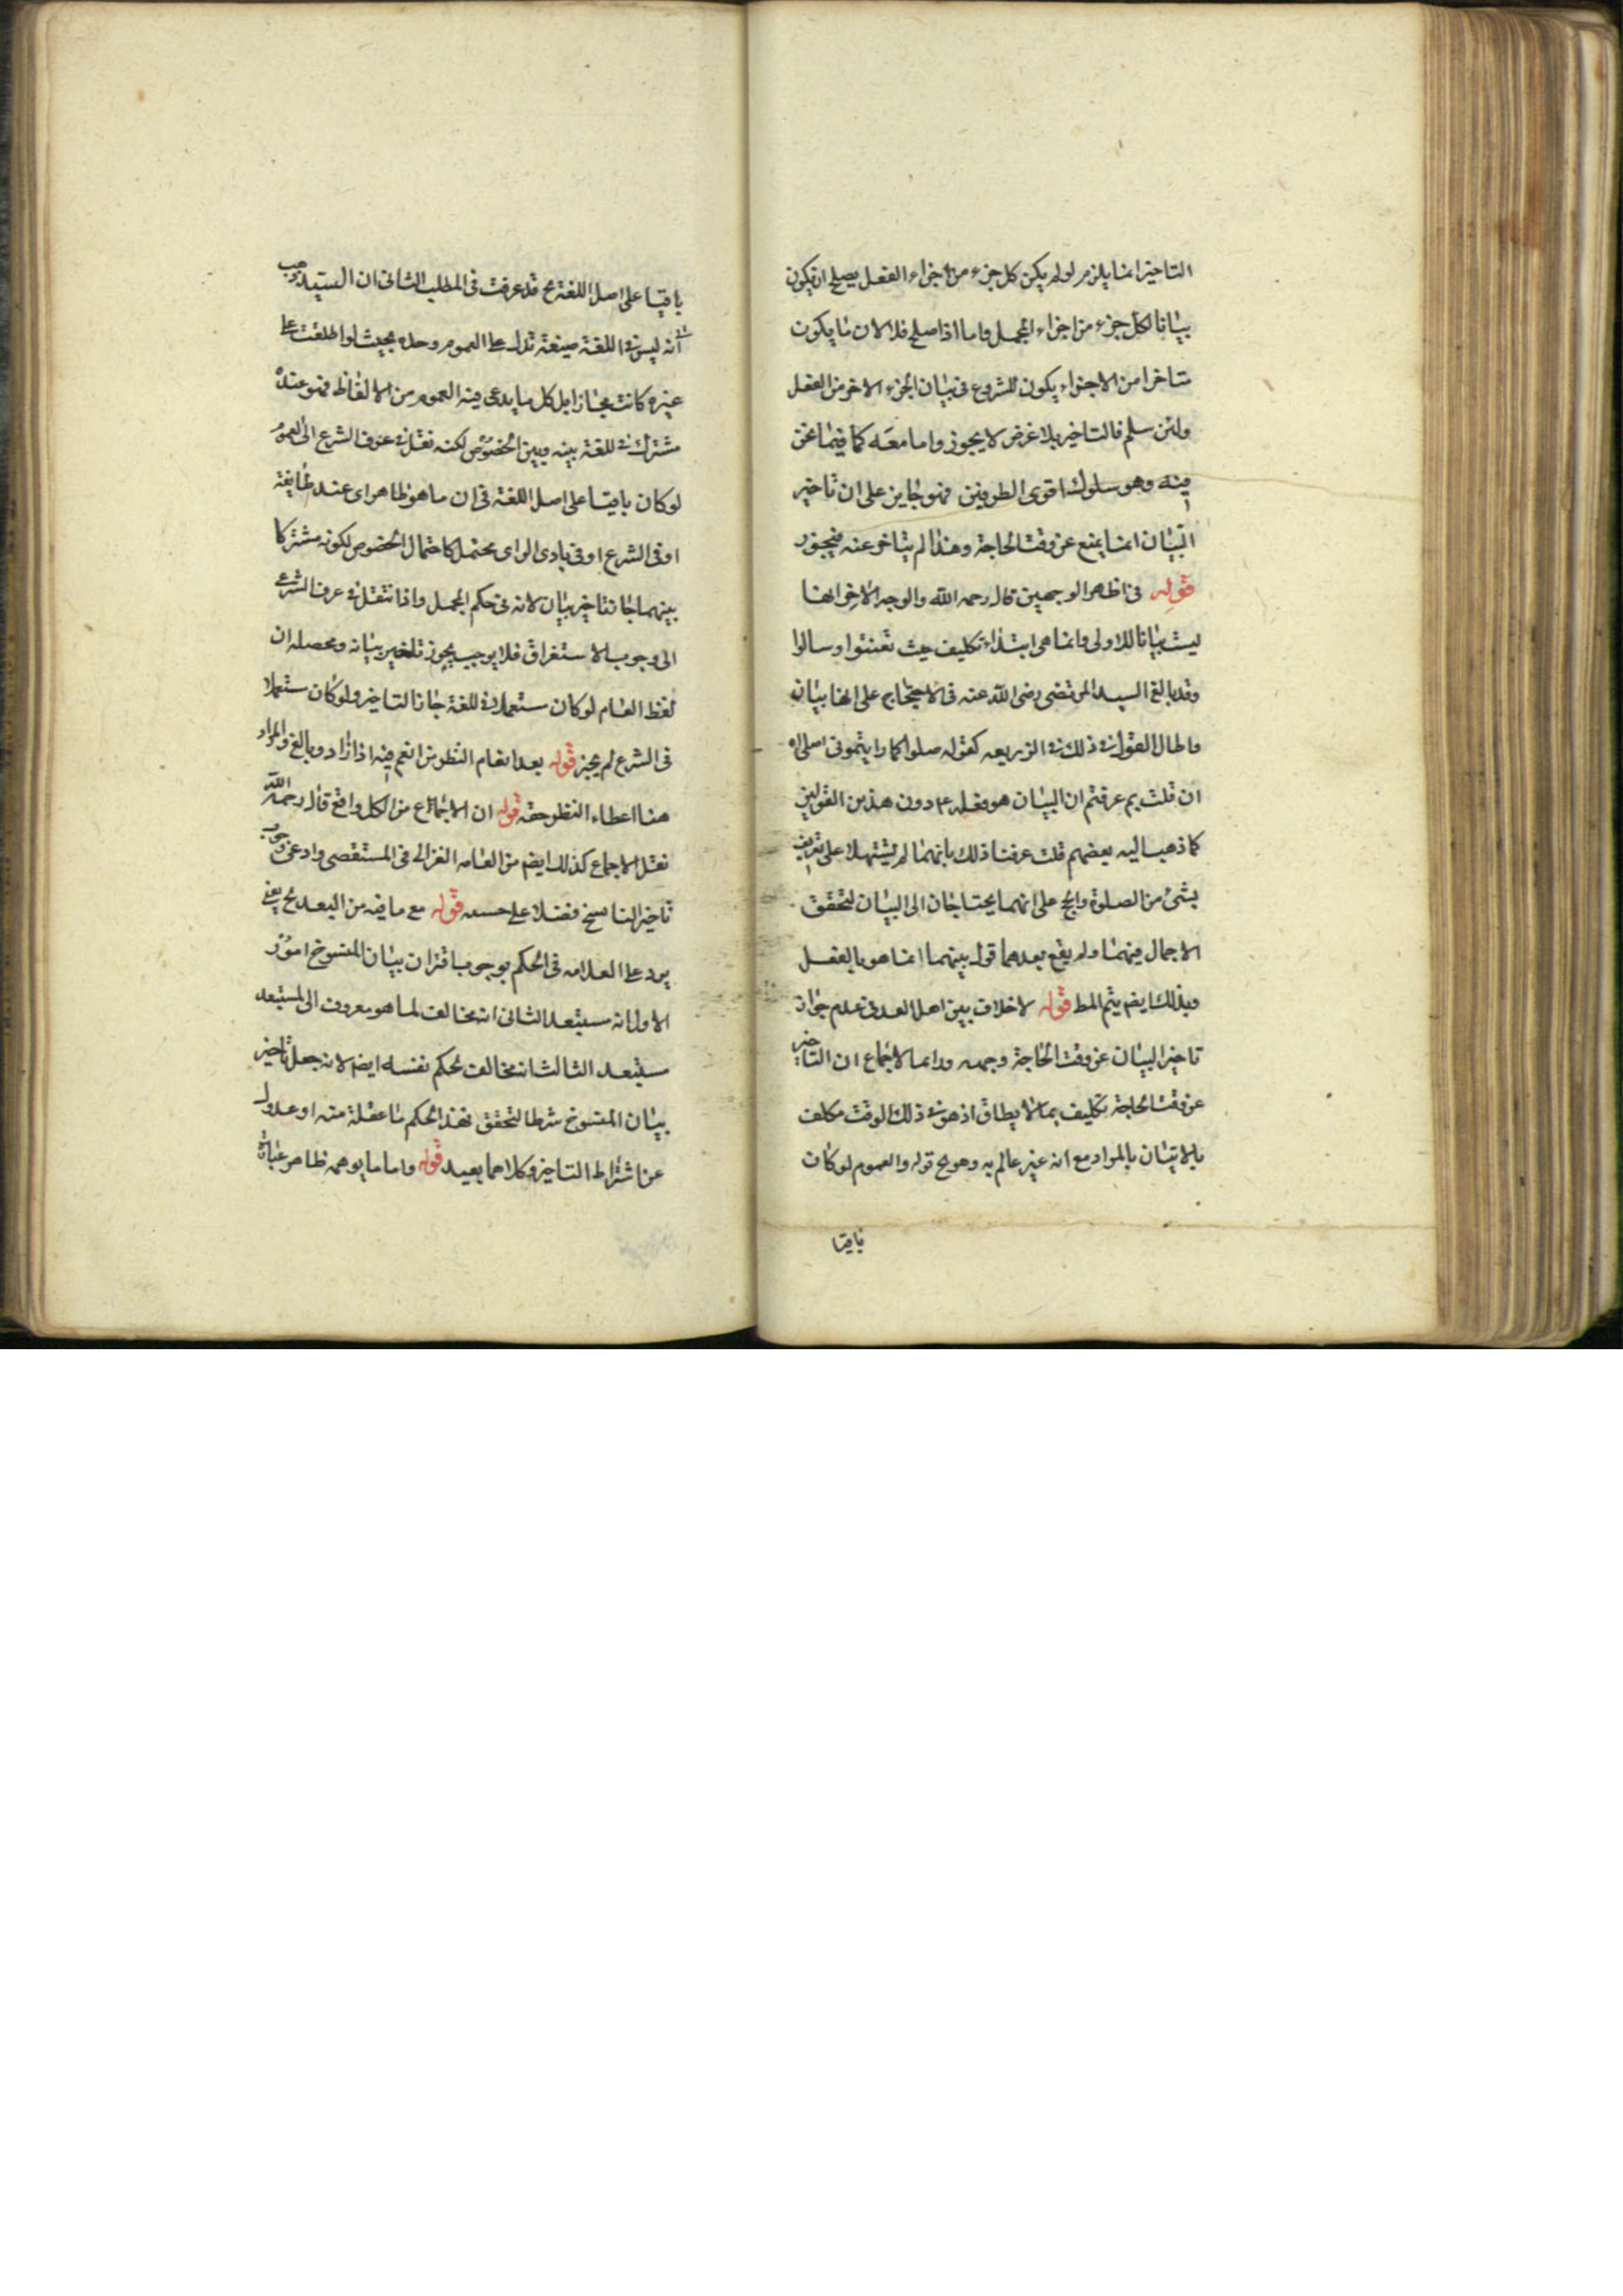 التاخير انما يلزم لو لم يكن كل جزء من اجزاء الفعل يصلح ان يكون
بيانا لكل جزء من اجزاء المجمل واما اذا صلح فلا لان ما يكون
متاخرا من الاجزاء يكون للشروع فى بيان الجزء الاخر من الفعل
ولئن سلم فالتاخير بلا غرض لا يجوز واما معه كما فيما نحن
فيه وهو سلوك اقوى الطريقين فهو جايز على ان تاخير
البيان انما يمنع عن وقت الحاجة وهذا لم يتاخر عنه فيجوز
قوله فى اظهر الوجهين قال رحمه الله والوجه الاخر انها
ليست بيانا للاولى وانما هى ابتداء تكليف حيث تعنتوا وسالوا
وقد بالغ السيد المرتضى رضى الله عنه فى الاحتجاج على انها بيان
واطال القول فى ذلك فى الزريعه كقوله صلوا كما رايتمونى اصلى اه
ان قلت بم عرفتم ان البيان هو فعله ع دون هذين القولين
كما ذهب اليه بعضهم قلت عرفنا ذلك بانهما لم يشتملا على تعريف
بشئ من الصلوة والحج على انهما يحتاجان الى البيان لتحقق
الاجمال فيهما ولم يقع بعدهما قول يبينهما انما هو بالفعل
وبذلك ايض يتم المط قوله لا خلاف بين اهل العدل فى عدم جواز
تاخير البيان عن وقت الحاجة وجهه ورا‌ء الاجماع ان التاخير
عن وقت الحاجة تكليف بما لا يطاق اذ هو فى ذلك الوقت مكلف
بالاتيان بالمراد مع انه غير عالم به وهو مح قوله والعموم لو كان
باقيا
باقيا على اصل اللغة مح قد عرفت فى المطلب الثانى ان السيد ذهب
الى انه ليس فى اللغة صيغة تدل على العموم وحده بحيث لو اطلقت على
غيره كانت مجازا بل كل ما يدعى فيه العموم من الالفاظ فهو عنده
مشترك فى اللغة بينه وبين الخصوص لكنه نقل فى عرف الشرع الى العموم
لو كان باقيا على اصل اللغة فى ان ما هو ظاهر اى عند طايفة
او فى الشرع او فى بادى الراى محتمل كاحتمال الخصوص لكونه مشتركا
بينهما جاز تاخير بيان لانه فى حكم المجمل واذا نتقل فى عرف الشرع
الى وجوب الاستغراق فلا يوجب يجوز تاخير بيانه ومحصله ان
لفظ العام لو كان مستعملا فى اللغة جاز التاخير ولو كان مستعملا
فى الشرع لم يجز قوله بعد انعام النظر من انعم فيه اذا زاد وبالغ والمراد
هنا اعطاء النظر حقه قوله ان الاجماع من الكل واقع قال رحمه الله
نقل الاجماع كذلك ايض من العامه الغزالى فى المستقصى وادعى وجوب
تاخير الناسخ فضلا على حسنه قوله مع ما فيه من البعد مح يعنى
يرد على العلامه فى الحكم بوجوب اقتران بيان المنسوخ امور
الاول انه مستبعد الثانى انه مخالف لما هو معروف الى المستبعد
مستبعد الثالث انه مخالف لحكم نفسه ايض لانه جعل تاخير
بيان المنسوخ شرطا لتحقق فهذا الحكم منا غفلة منه او عدول
عن اشتراط التاخير وكلاهما بعيد قوله واما ما يوهمه ظاهر عبارة